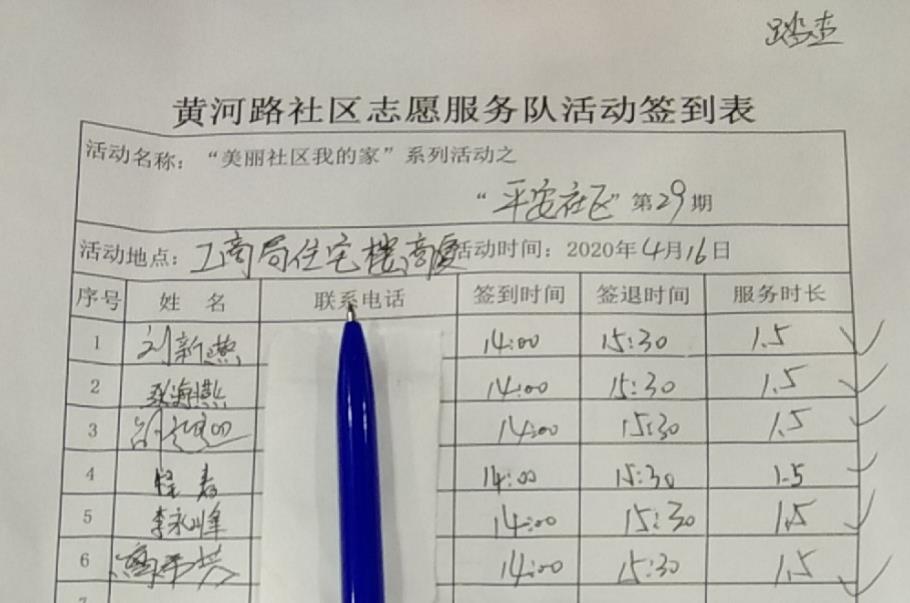 踏查
黄河路社区志愿服务队活动签到表
活动名称：“美丽社区我的家”系列活动之
“平安社区”第29期
活动地点：工商局住宅楼高厦 活动时间：2020年4月16日
序号 姓 名 联系电话 签到时间 签退时间 服务时长
1 刘新燕 14:00 15:30 1.5
2 张海燕 14:00 15:30 1.5
3 14:00 15:30 1.5
4 14:00 15:30 1.5
5 李永峰 14:00 15:30 1.5
6 14:00 15:30 1.5